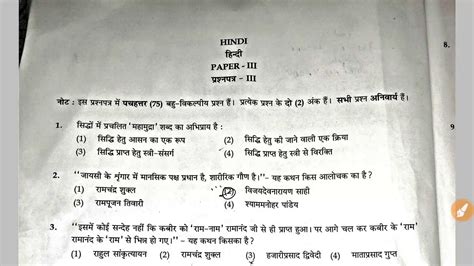 HINDI
हिन्दी
PAPER - III
प्रश्नपत्र - III
8.
नोट : इस प्रश्नपत्र में पचहत्तर (75) बहु-विकल्पीय प्रश्न हैं। प्रत्येक प्रश्न के दो (2) अंक हैं। सभी प्रश्न अनिवार्य हैं।
1. सिद्धों में प्रचलित 'महामुद्रा' शब्द का अभिप्राय है : 9
(1) सिद्धि हेतु आसन का एक रूप (2) सिद्धि हेतु की जाने वाली एक क्रिया
(3) सिद्धि प्राप्त हेतु स्त्री-संसर्ग (4) सिद्धि प्राप्त हेतु स्त्री से विरक्ति
2. "जायसी के शृंगार में मानसिक पक्ष प्रधान है, शारीरिक गौण है।"- यह कथन किस आलोचक का है?
(1) रामचंद्र शुक्ल (2) विजयदेवनारायण साही
(3) रामपूजन तिवारी (4) श्याममनोहर पांडेय
3. "इसमें कोई सन्देह नहीं कि कबीर को 'राम-नाम' रामानंद जी से ही प्राप्त हुआ। पर आगे चल कर कबीर के 'राम'
रामानंद के 'राम' से भिन्न हो गए।" - यह कथन किसका है?
(1) राहुल सांकृत्यायन (2) रामचंद्र शुक्ल (3) हजारीप्रसाद द्विवेदी (4) माताप्रसाद गुप्त